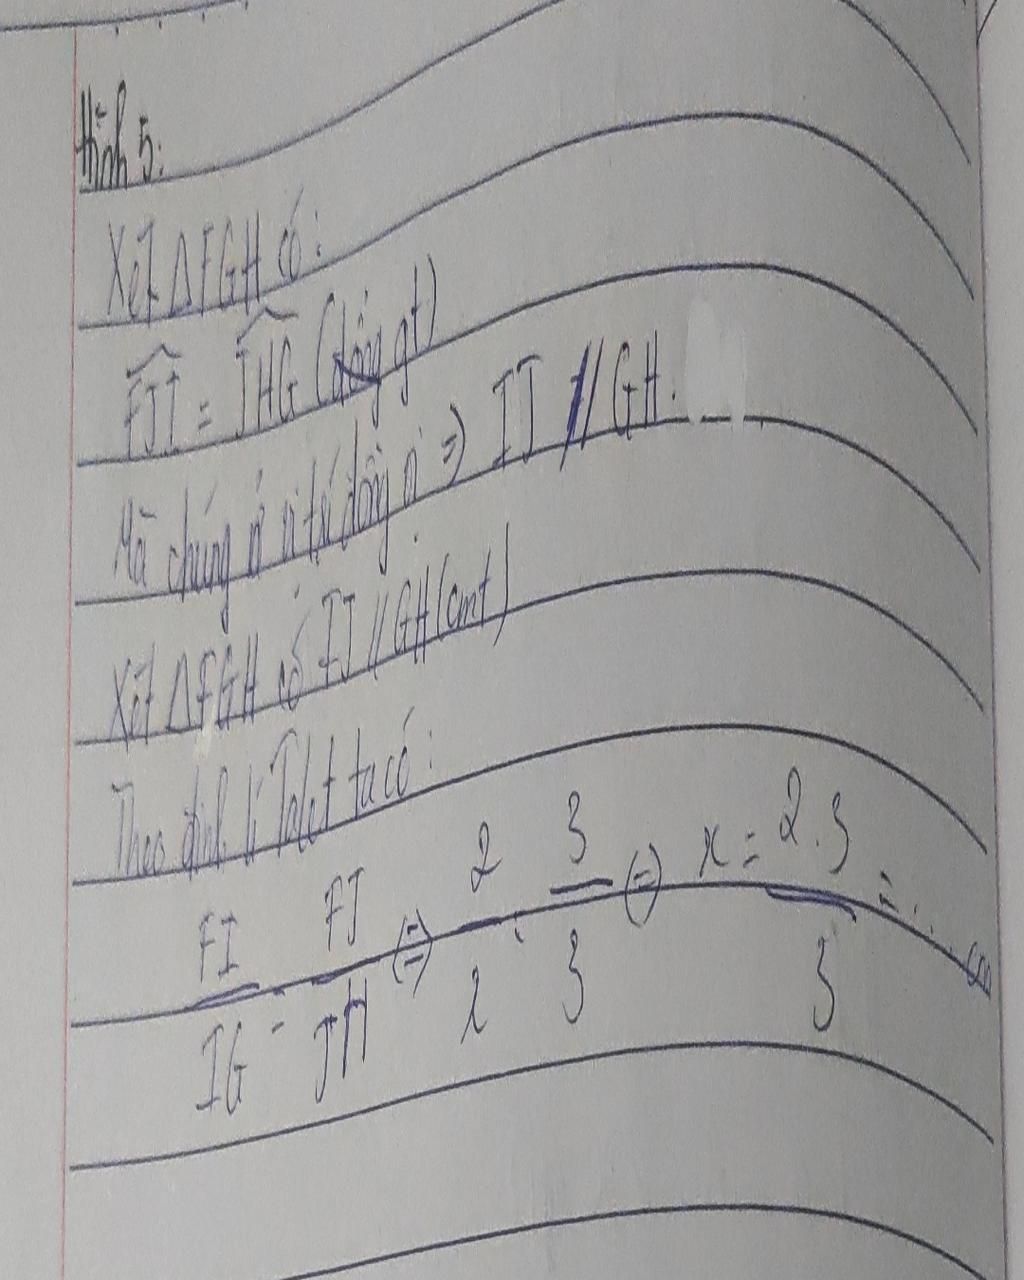 Hình 5:
Xét ΔFGH có:
FJI = JHG (gt)
Mà chúng ở vị trí đồng vị => IJ // GH.
Xét ΔFGH có IJ // GH (cmt)
Theo định lí Talet ta có:
FI/IG = FJ/JH (=) 2/x = 3/3 (=) x = 2.3/3 = ... cm